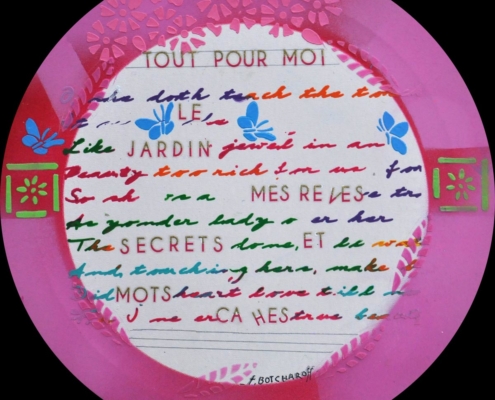 TOUT POUR MOI
doth teach the to
LE
Like JARDIN jewel in an
Beauty too rich for use, for
So sh MES REVES tr
As yonder lady o er her
The SECRETS done, ET
And, touching hers, make
MOTS heart love till n
CA HES true beau
F. BOTCHAROFF